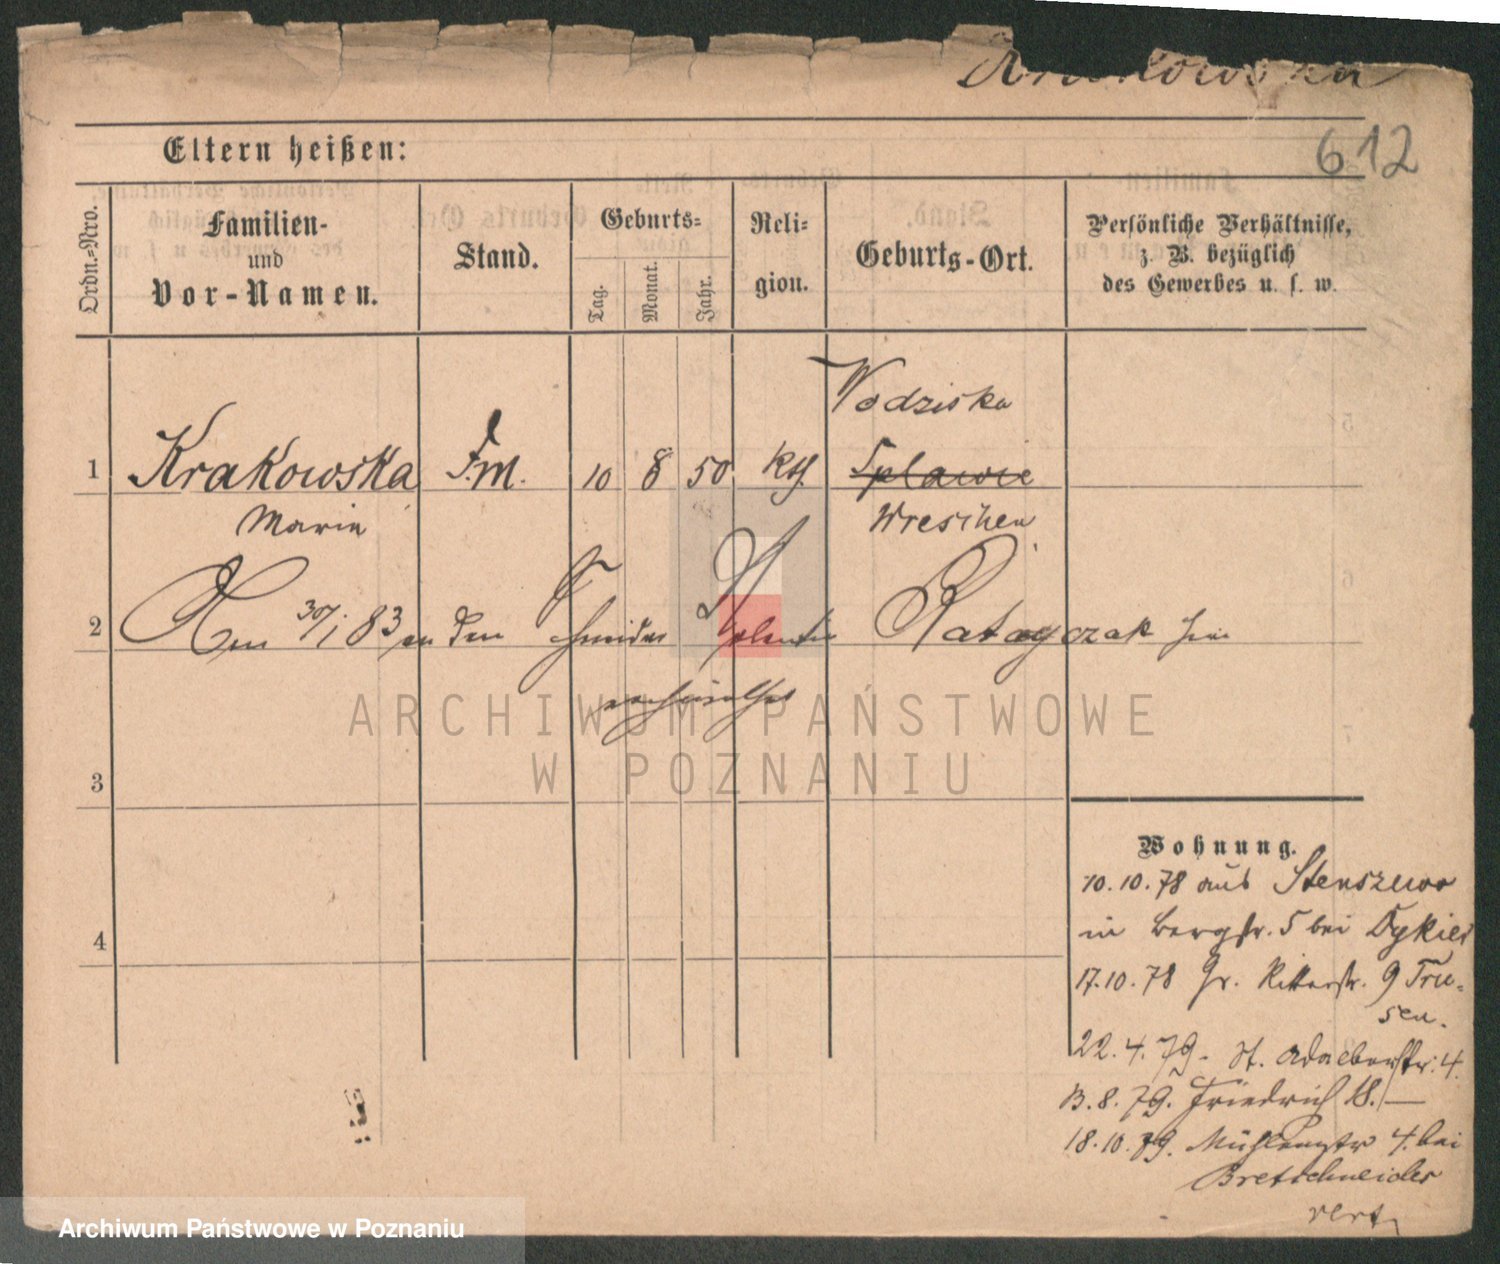 Krakowska
612
Eltern heißen:
Ordn.-Nro.
Familien-
und
Vor-Namen.
Stand.
Geburts-
Tag.
Monat.
Jahr.
Reli-
gion.
Geburts-Ort.
Persönliche Verhältnisse,
z. B. bezüglich
des Gewerbes u. s. w.
Wodziska
1 Krakowska 10 8 50 kth. Splawie
Marie Wreschen
2 Am 30/1 83 an den Schneider Valentin Ratayczak hier
verheirathet
ARCHIWUM PAŃSTWOWE
W POZNANIU
3
4
Wohnung.
10.10.78 aus Stenszewo
in Bergstr. 5 bei Dykier
17.10.78 Gr. Ritterstr. 9 Trie-
sen.
22.4.79. St. Adalbertstr. 4.
13.8.79. Friedrich 18.
18.10.79. Mühlenstr 4. bei
Bretschneider
vert
Archiwum Państwowe w Poznaniu